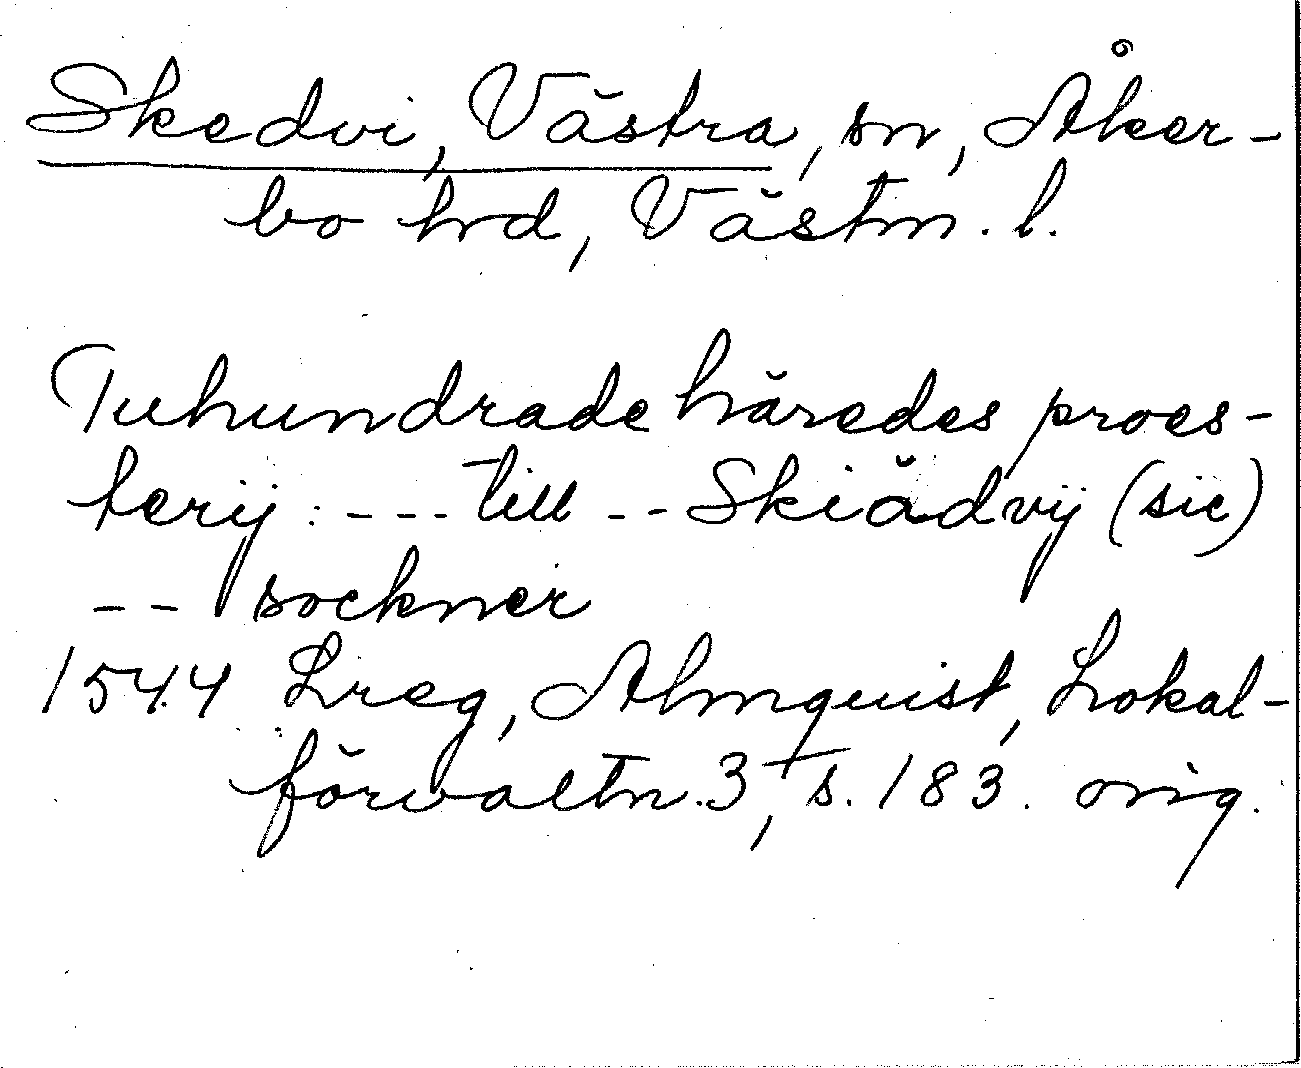 Skedvi, Västra, sn, Åker-
bo hrd, Västm. l.
Tuhundrade häredes proes-
terij : --- till -- Skiädvij (sic)
-- sockner
1544 Lreg, Almquist, Lokal-
förvaltn. 3, s. 183. orig.